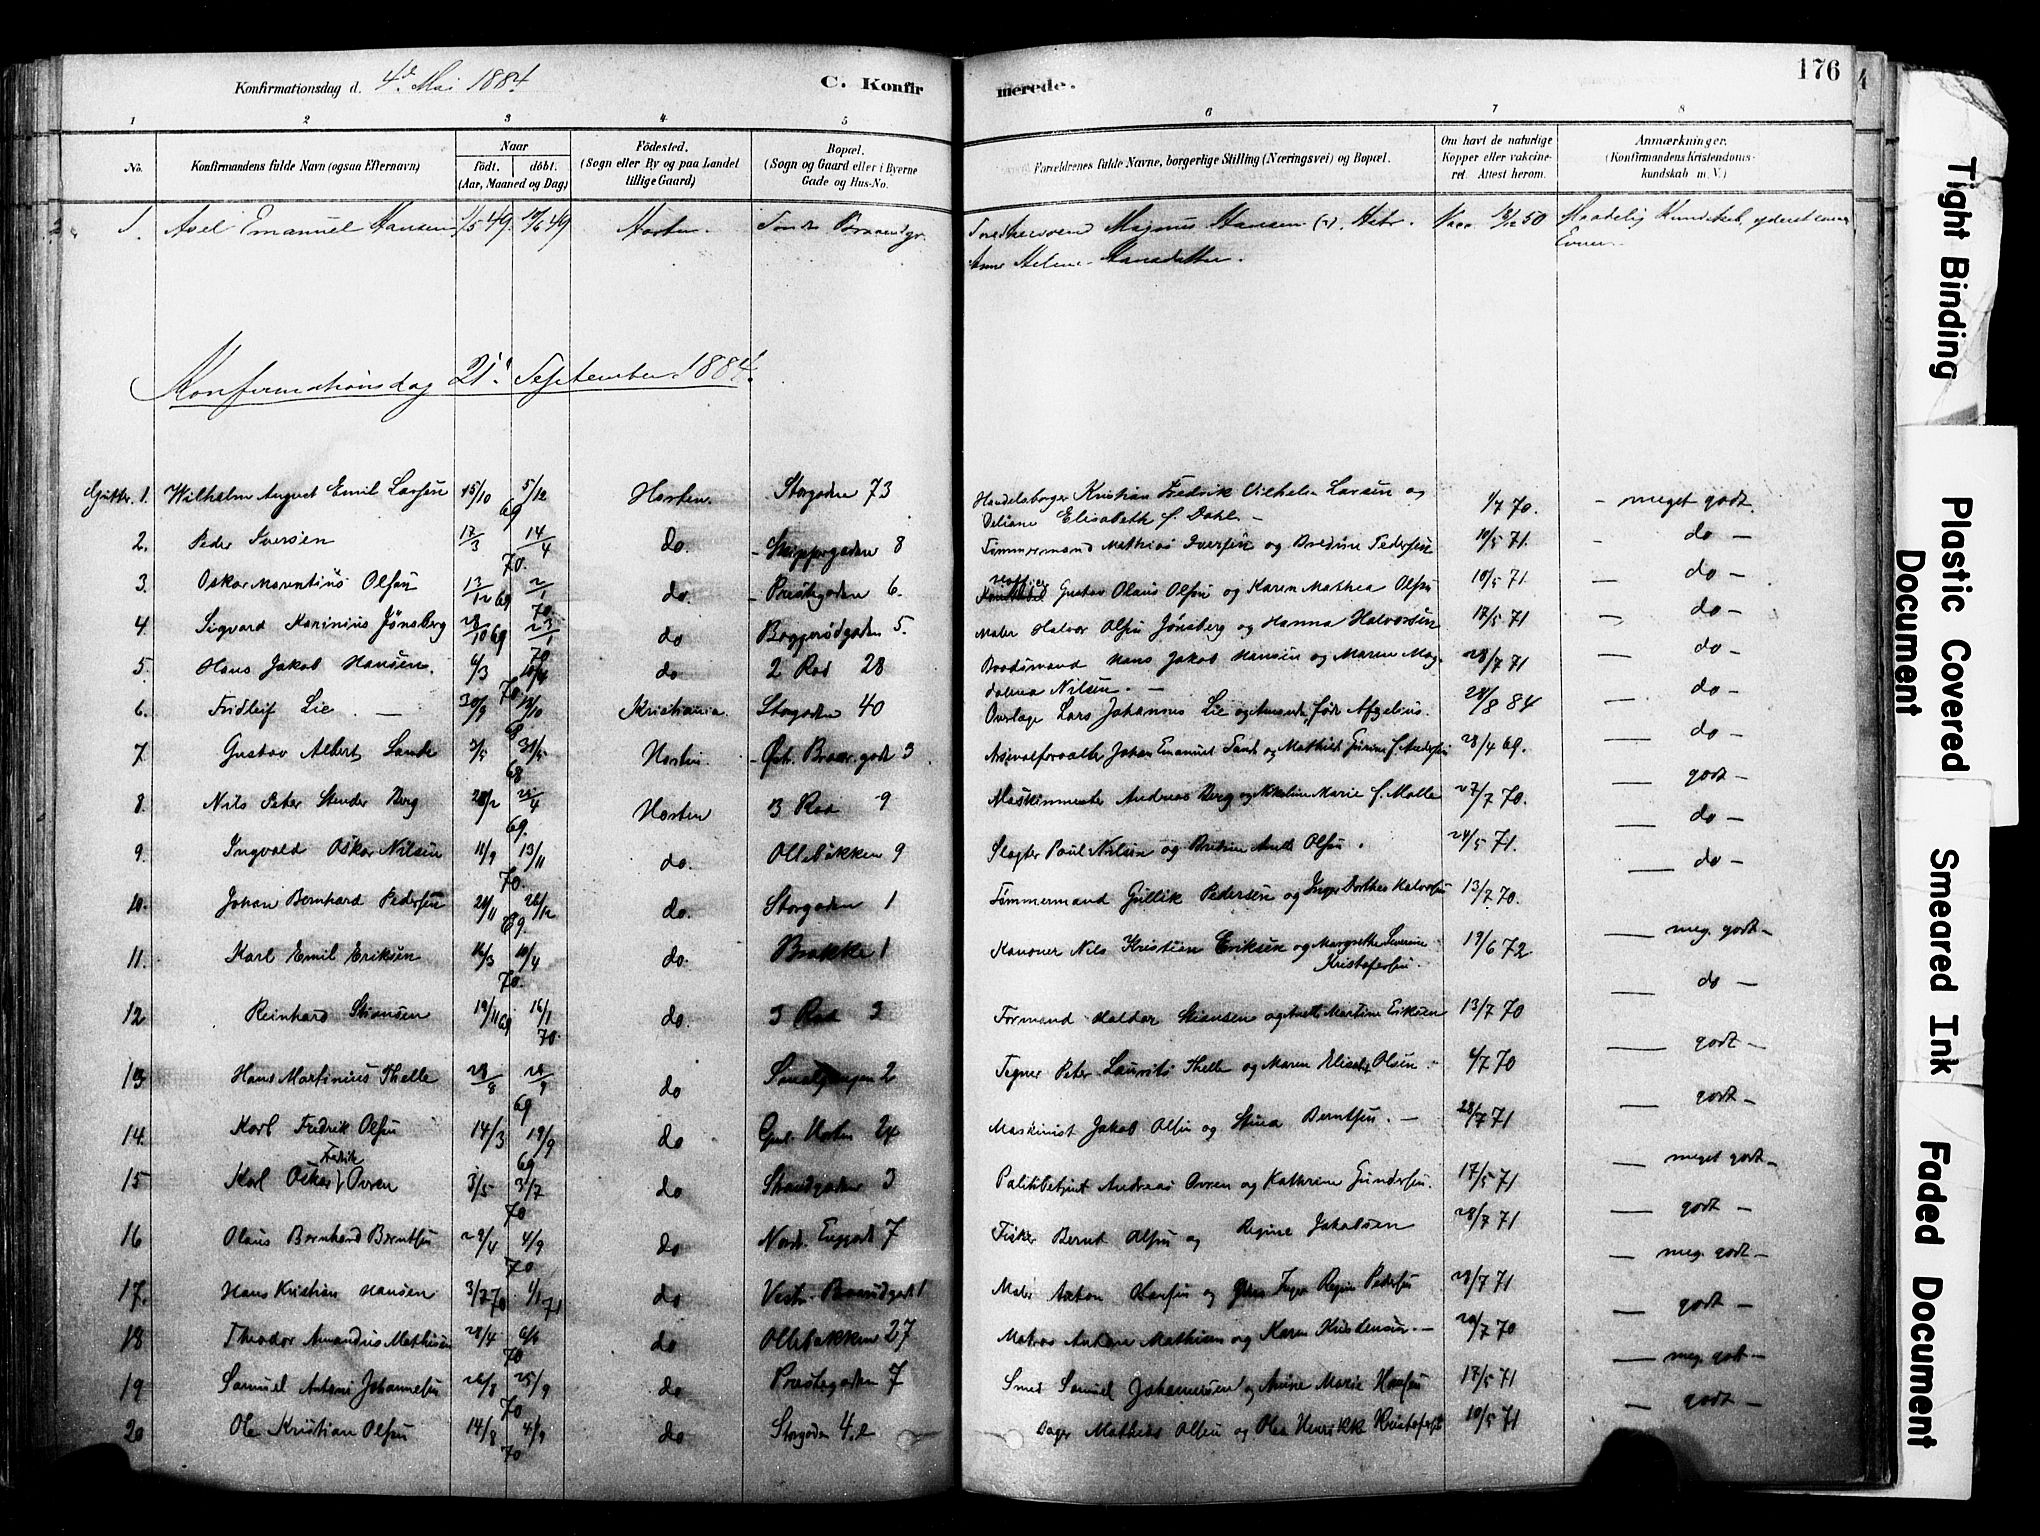 Konfirmationsdag d. 4de Mai 1884
C. Konfirmerede.
176
1 2 3 4 5 6 7 8
No.
Konfirmandens fulde Navn (ogsaa Efternavn)
Naar
født. døbt.
(Aar, Maaned og Dag)
Fødested.
(Sogn eller By og paa Landet
tillige Gaard)
Bopæl.
(Sogn og Gaard eller i Byerne
Gade og Hus-No.
Forældrenes fulde Navne, borgerlige Stilling (Næringsvei) og Bopæl.
Om havt de naturlige
Kopper eller vakcine-
ret. Attest herom.
Anmærkninger.
(Konfirmandens Kristendoms-
kundskab m. V.)
1. Axel Emanuel Hansen 1/5 49 Horten. Magnus Hansen 50
Anne Helene Hansdatter.
Konfirmationsdag 21de September 1884.
Gutter. 1. Wilhelm August Emil Larsen 15/10 5/12 69 Horten. Storgaden 73 Handelsborger Kristian Fredrik Vilhelm Larsen og 1/7 70. - meget godt.
Elisabeth f. Dahl -
2. Peder Iversen 17/3 14/4 70. do. 8 Tømmermand Mathias Iversen og Pedersen 10/5 71. - do -
3. Oskar Marentius Olsen 13/12 69 2/1 70 do. Prestegaden 6. Gustav Olaus Olsen og Karen Mathea Olsen 10/5 71 - do -
4. Sigvard Karinius Jønsberg 28/10 69 23/1 70 do Baggerødgaden 5. Maler Halvor Olsen Jønsberg og Hanna Halvorsen 17/5 71 - do -
5. Hans Jakob Hansen. 6/3 70 do 2 Rad 28 Baadsmand Hans Jakob Hansen og Maren Mag- 28/7 71 - do -
dalena Nilsen. -
6. Fridleif Lie - 30/9 18/10 68 Kristiania. Storgaden 40 Overlæge Lars Johannes Lie og født Afzelius. 28/8 84 - do -
7. Gustav Albert Sande 3/5 31/5 68 Horten. Østr. 3 Arsenalforvalter Johan Emanuel Sande og Mathilde f. Andersen 28/4 69. - do -
8. Nils Peter Stender Berg 28/2 25/4 69. Horten 3 Rad 9 Maskinmester Andreas Berg og Marie f. Molle 27/7 70. - godt -
9. Ingvald Oskar Nilsen 11/9 13/11 70. do. Ollebakken 9 Slagter Paul Nilsen og Olsen. 24/5 71. - do -
10. Johan Bernhard Pedersen 21/11 26/12 69. do. Storgaden 1 Tømmermand Gullik Pedersen og Inger Dorthea Halvorsen 13/7 70. - do -
11. Karl Emil Eriksen 16/3 10/4 70. do. Brakke 1 Kanoner Nils Kristian Eriksen og Margrethe Severine 19/6 72 - meg. godt -
Kristofersen.
12 Reinhard Stiansen 19/11 69 16/1 70. do. 3 Rad 3 Formand Haldor Stiansen og Martine Eriksen 13/7 70 - do -
13 Hans Martinius Thelle 28/8 69 do 2 Tegner Peter Laurits Thelle og Maren Elisabet Olsen - 6/7 70 - godt -
14. Karl Fredrik Olsen 14/3 19/9 69 do Gml. Horten 24 Maskinist Jakob Olsen og Stina Berntsen. - 28/7 71 - godt -
15 Karl Oskar Fredrik Ovren 3/5 3/7 70 do Strandgaden 3 Politibetjent Andreas Ovren og Kathrine Gundersen. 17/5 71 - meget godt -
16 Olaus Bernhard Berntsen 29/4 4/9 70 do Nordr. Enggade 7 Fisker Bernt Olsen og Regine Jakobsen 28/7 71 - godt -
17. Hans Kristian Hansen 3/7 70 1/1 71 do Vestr. Braendgd. 1 Maler Anton Hansen og Inger Regine Pedersen 29/7 71 - meg. godt -
18 Theodor Amandus Mathisen 28/4 6/6 70 do Ollebakken 27 Matros Anton Mathisen og Karen Kristensen. - 20/7 70 - godt -
19 Samuel Antoni Johannesen 26/8 25/9 70 do Prestegaden 7 Smed Samuel Johannesen og Anne Marie Hansen 17/5 71 - meg. godt -
20 Ole Kristian Olsen 14/8 4/9 70 do Storgaden 42 Mathias Olsen og Olea Henrikke Kristofersen 10/5 71 - godt -
Tight Binding
Plastic Covered
Document
Smeared Ink
Faded Document